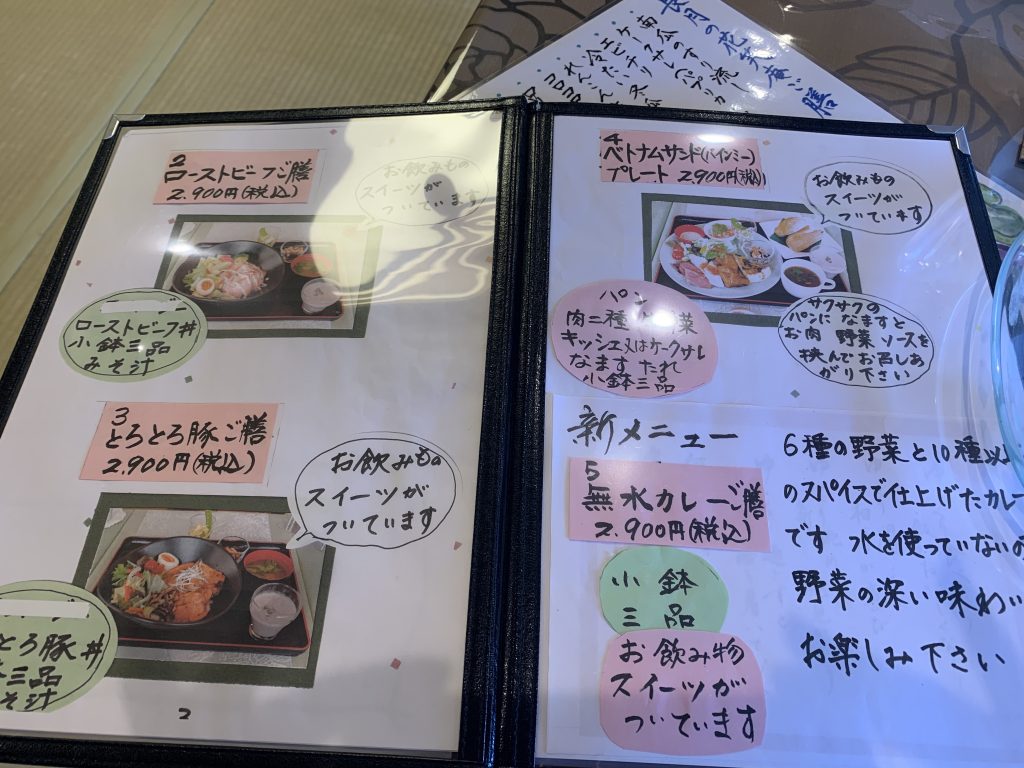 長月の花笑庵ご膳
南瓜のすり流し
2
ローストビーフご膳
2.900円(税込)
お飲みもの
スイーツが
ついています
ローストビーフ丼
小鉢三品
みそ汁
3
とろとろ豚ご膳
2.900円(税込)
お飲みもの
スイーツが
ついています
とろ豚丼
三品
汁
2
4
ベトナムサンド(バインミー)
プレート 2.900円(税込)
お飲みもの
スイーツが
ついています
パン
肉二種 野菜
キッシュ又はケークサレ
なます たれ
小鉢三品
サクサクの
パンに なますと
お肉 野菜 ソースを
挟んでお召しあ
がり下さい
新メニュー
5
無水カレーご膳
2.900円(税込)
小鉢
三品
お飲み物
スイーツが
ついています
6種の野菜と10種以
のスパイスで仕上げたカレー
です 水を使っていないの
野菜の深い味わい
お楽しみ下さい